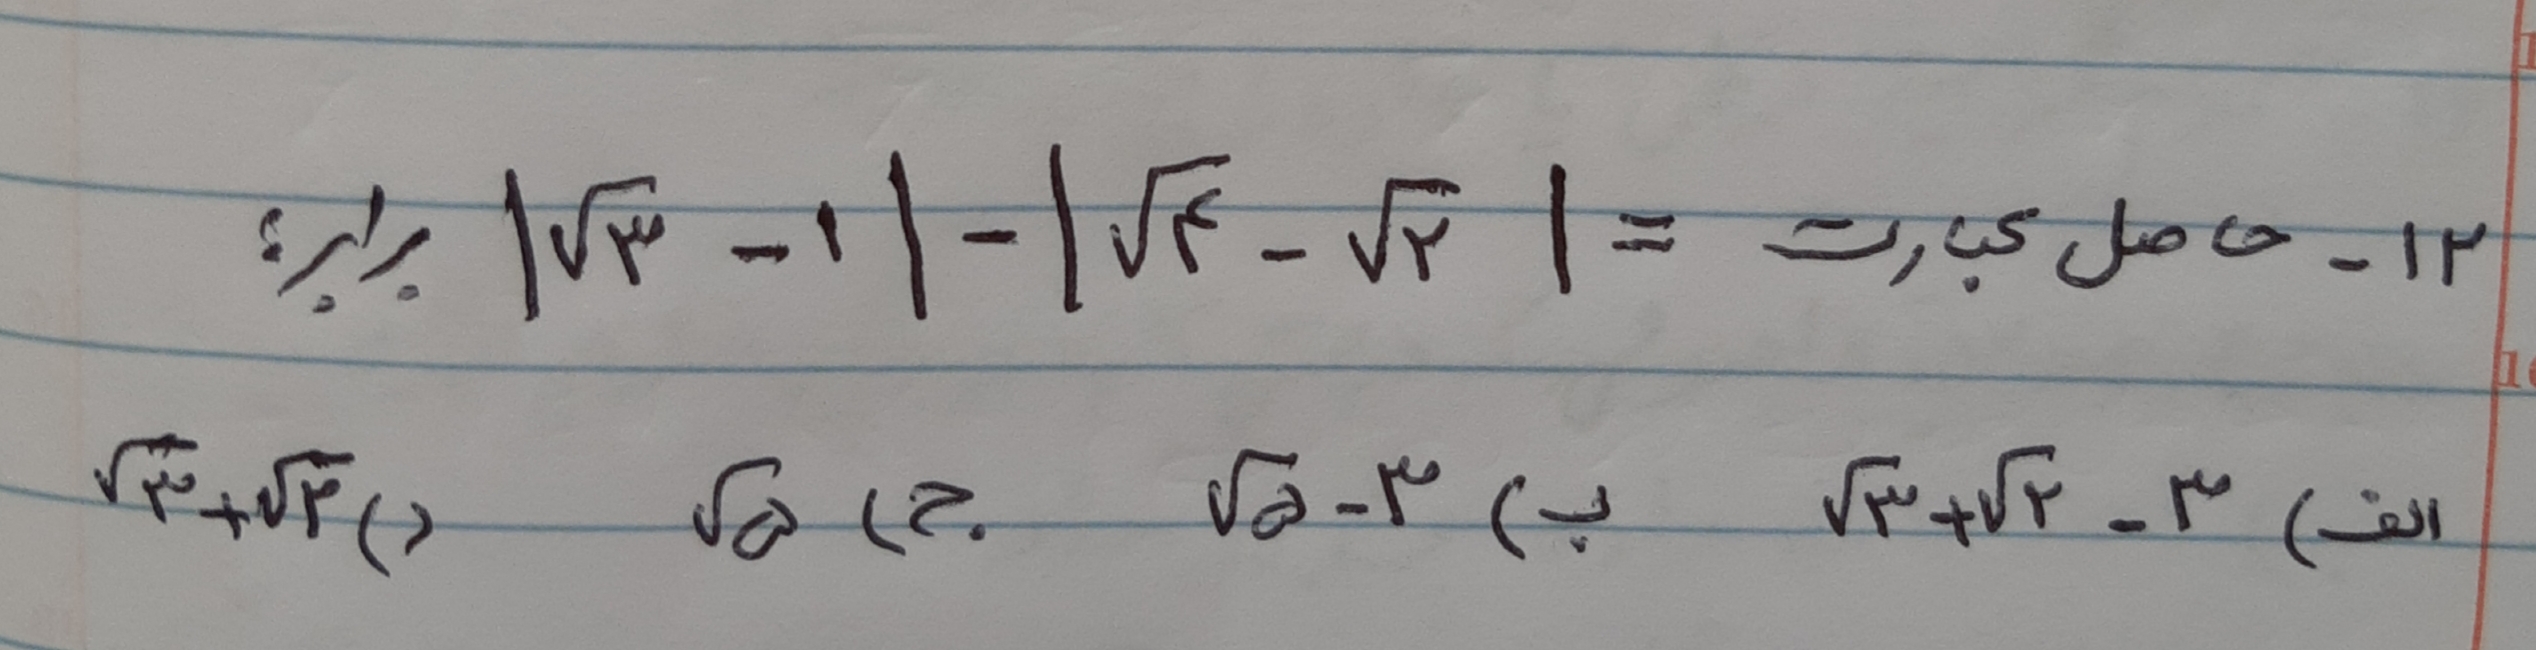 ۱۲- حاصل عبارت = |√۳ - ۱| - |√۴ - √۲| برابره؟
الف) √۳+√۲ - ۳ ب) √۵ - ۳ ج) √۵ د) √۳+√۲